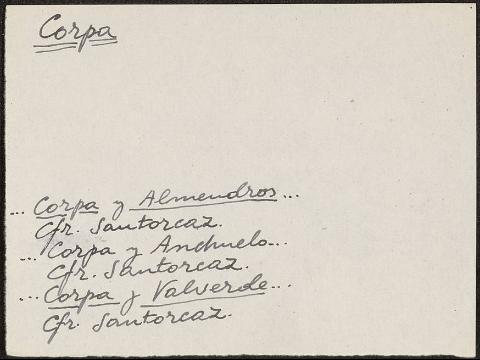 Corpa
... Corpa y Almendros ...
Cfr. Santorcaz.
... Corpa y Anchuelo...
Cfr. Santorcaz.
... Corpa y Valverde ...
Cfr. Santorcaz.